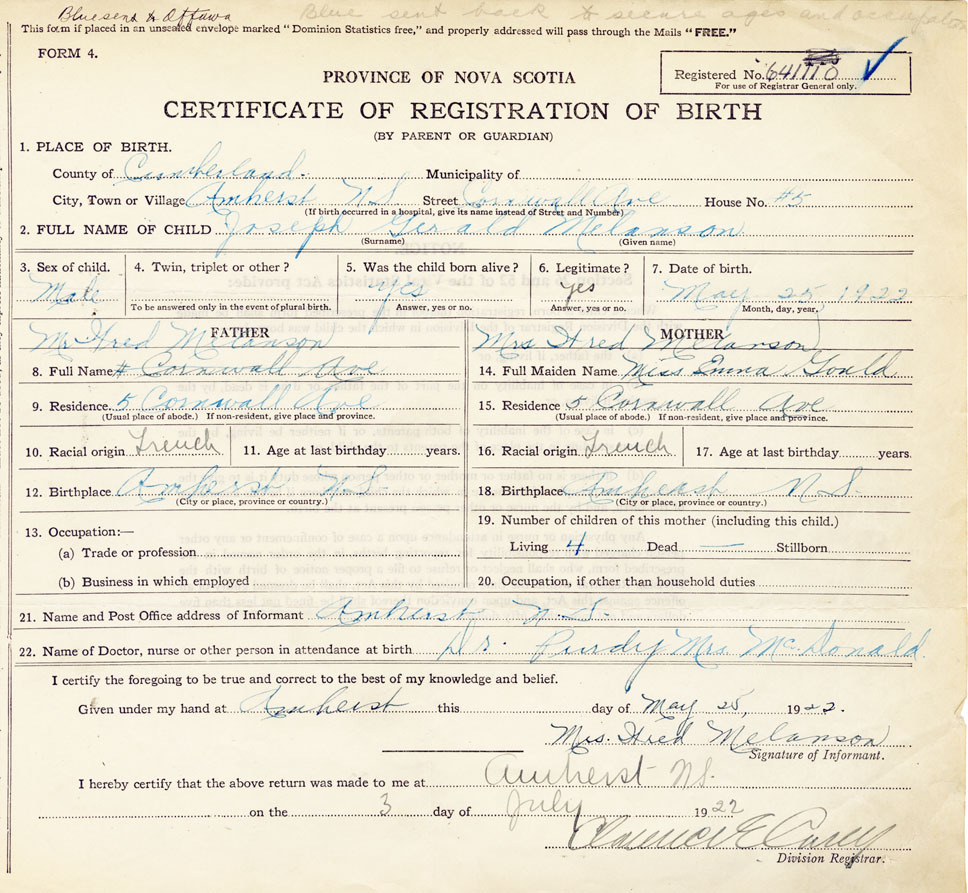 Blue sent to Ottawa Blue sent back to secure ages and occupation
This form if placed in an unsealed envelope marked "Dominion Statistics free," and properly addressed will pass through the Mails "FREE."
FORM 4.
PROVINCE OF NOVA SCOTIA
Registered No.
For use of Registrar General only.
CERTIFICATE OF REGISTRATION OF BIRTH
(BY PARENT OR GUARDIAN)
1. PLACE OF BIRTH.
County of Cumberland. Municipality of
City, Town or Village Amherst N S Street Cornwall Ave House No. #5
(If birth occurred in a hospital, give its name instead of Street and Number)
2. FULL NAME OF CHILD Joseph Gerald Melanson
(Surname) (Given name)
3. Sex of child. 4. Twin, triplet or other? 5. Was the child born alive? 6. Legitimate? 7. Date of birth.
Male Yes Yes May 25, 1922
To be answered only in the event of plural birth. Answer, yes or no. Answer, yes or no. Month, day, year.
FATHER MOTHER
Mr Fred Melanson Mrs Fred Melanson
8. Full Name # Cornwall Ave 14. Full Maiden Name Miss Emma Gould
9. Residence. 5 Cornwall Ave 15. Residence 5 Cornwall Ave
(Usual place of abode.) If non-resident, give place and province. (Usual place of abode.) If non-resident, give place and province.
10. Racial origin French 11. Age at last birthday years. 16. Racial origin French 17. Age at last birthday years.
12. Birthplace Amherst N.S. 18. Birthplace Amherst N S.
(City or place, province or country.) (City or place, province or country.)
13. Occupation:— 19. Number of children of this mother (including this child.)
(a) Trade or profession Living 4 Dead — Stillborn
(b) Business in which employed 20. Occupation, if other than household duties
21. Name and Post Office address of Informant Amherst N.S.
22. Name of Doctor, nurse or other person in attendance at birth Dr. Purdy Mrs McDonald.
I certify the foregoing to be true and correct to the best of my knowledge and belief.
Given under my hand at Amherst this day of May 25, 1922.
Mrs. Fred Melanson
Signature of Informant.
I hereby certify that the above return was made to me at Amherst NS.
on the 3 day of July 1922
Clarence E Carey
Division Registrar.